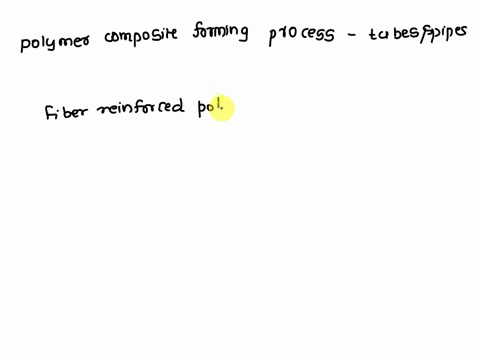 polymer composite forming process - tubes/pipes
Fiber reinforced pol